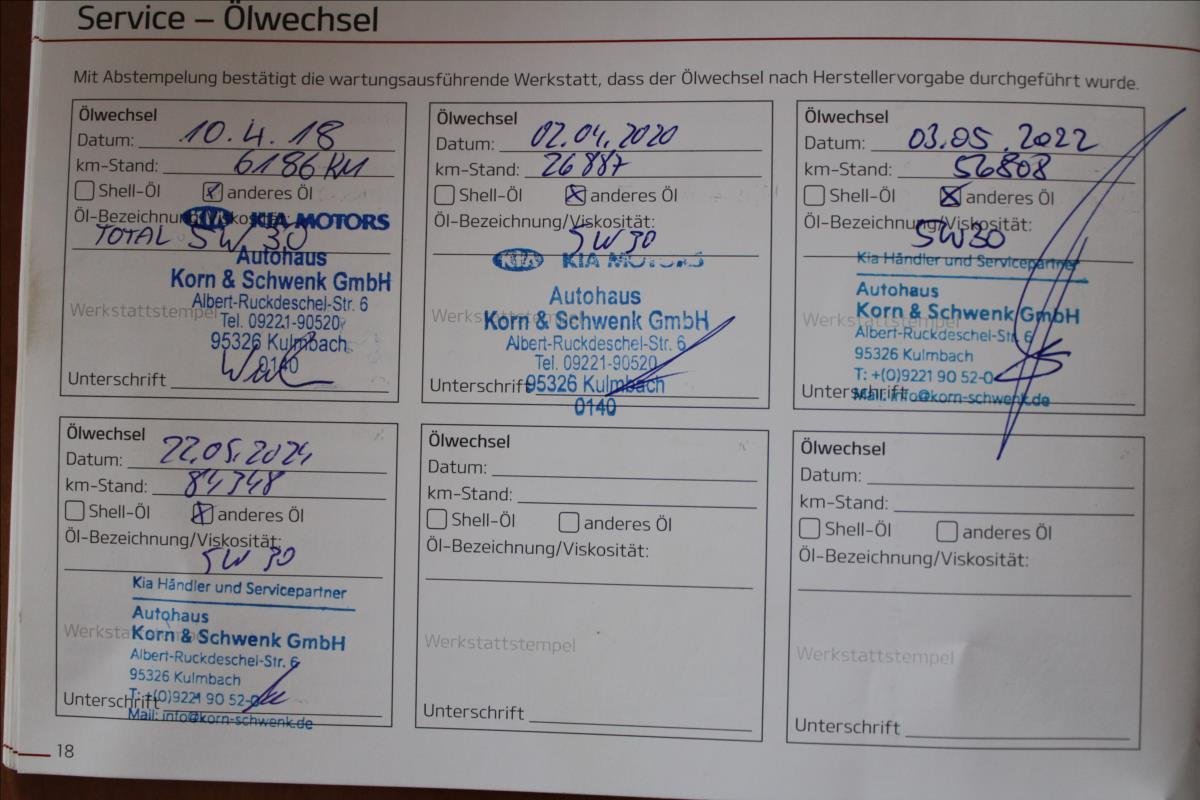 Service – Ölwechsel
Mit Abstempelung bestätigt die wartungsausführende Werkstatt, dass der Ölwechsel nach Herstellervorgabe durchgeführt wurde.
Ölwechsel
Datum: 10.4.18
km-Stand: 6186 KM
Shell-Öl anderes Öl
Öl-Bezeichnung/Viskosität:
KIA KIA MOTORS
TOTAL 5W30
Autohaus
Korn & Schwenk GmbH
Albert-Ruckdeschel-Str. 6
Werkstattstempel
Tel. 09221-90520
95326 Kulmbach
0140
Unterschrift
Ölwechsel
Datum: 02.04.2020
km-Stand: 26887
Shell-Öl anderes Öl
Öl-Bezeichnung/Viskosität:
5W30
KIA KIA MOTORS
Autohaus
Werkstattstempel
Korn & Schwenk GmbH
Albert-Ruckdeschel-Str. 6
Tel. 09221-90520
Unterschrift
95326 Kulmbach
0140
Ölwechsel
Datum: 03.05.2022
km-Stand: 56808
Shell-Öl anderes Öl
Öl-Bezeichnung/Viskosität:
5W30
Kia Händler und Servicepartner
Autohaus
Korn & Schwenk GmbH
Werkstattstempel
Albert-Ruckdeschel-Str. 6
95326 Kulmbach
T: +(0)9221 90 52-0
Unterschrift
Mail: info@korn-schwenk.de
Ölwechsel
Datum: 22.05.2024
km-Stand: 84348
Shell-Öl anderes Öl
Öl-Bezeichnung/Viskosität:
5W30
Kia Händler und Servicepartner
Autohaus
Werkstattstempel
Korn & Schwenk GmbH
Albert-Ruckdeschel-Str. 6
95326 Kulmbach
Unterschrift
T: +(0)9221 90 52-0
Mail: info@korn-schwenk.de
Ölwechsel
Datum:
km-Stand:
Shell-Öl anderes Öl
Öl-Bezeichnung/Viskosität:
Werkstattstempel
Unterschrift
Ölwechsel
Datum:
km-Stand:
Shell-Öl anderes Öl
Öl-Bezeichnung/Viskosität:
Werkstattstempel
Unterschrift
18